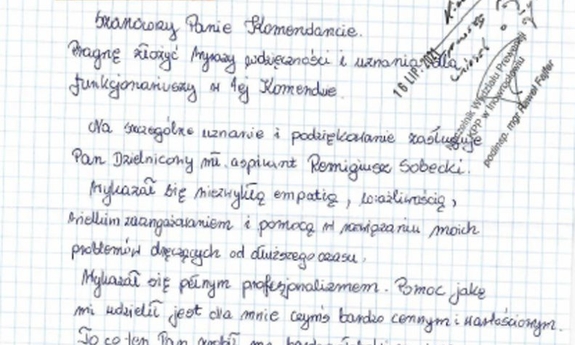 Szanowny Panie Komendancie.
Pragnę złożyć wyrazy wdzięczności i uznania dla
funkcjonariuszy w tej Komendzie.
Na szczególne uznanie i podziękowanie zasługuje
Pan Dzielnicowy mł. aspirant Remigiusz Sobecki.
Wykazał się niezwykłą empatią, wrażliwością,
wielkim zaangażowaniem i pomocą w rozwiązaniu moich
problemów dręczących od dłuższego czasu.
Wykazał się pełnym profesjonalizmem. Pomoc jaką
mi udzielił jest dla mnie czymś bardzo cennym i wartościowym.
To co ten Pan zrobił
16 LIP.
Naczelnik Wydziału Prewencji
KPP w Inowrocławiu
podinsp. mgr Paweł Fejfer